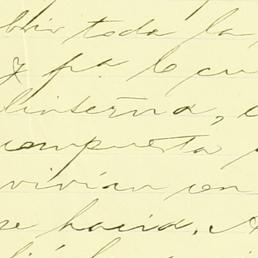 brir toda la
y pa. lo cu
linterna, 
compuesta
vivían en
se hacía. A